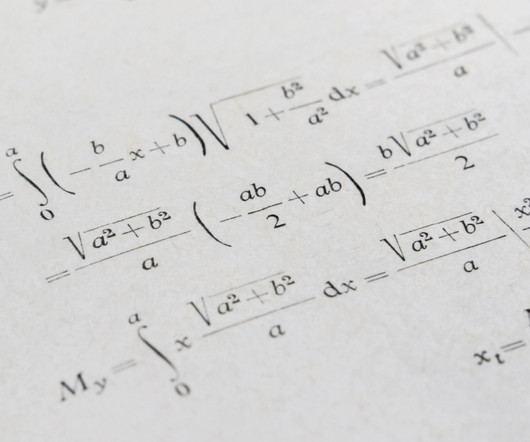 = ∫₀ᵃ (− b/a x + b) √(1 + b²/a²) dx = √(a² + b²)/a |
= √(a² + b²)/a (− ab/2 + ab) = b√(a² + b²)/2
M_y = ∫₀ᵃ x √(a² + b²)/a dx = √(a² + b²)/a | x²
x_t =